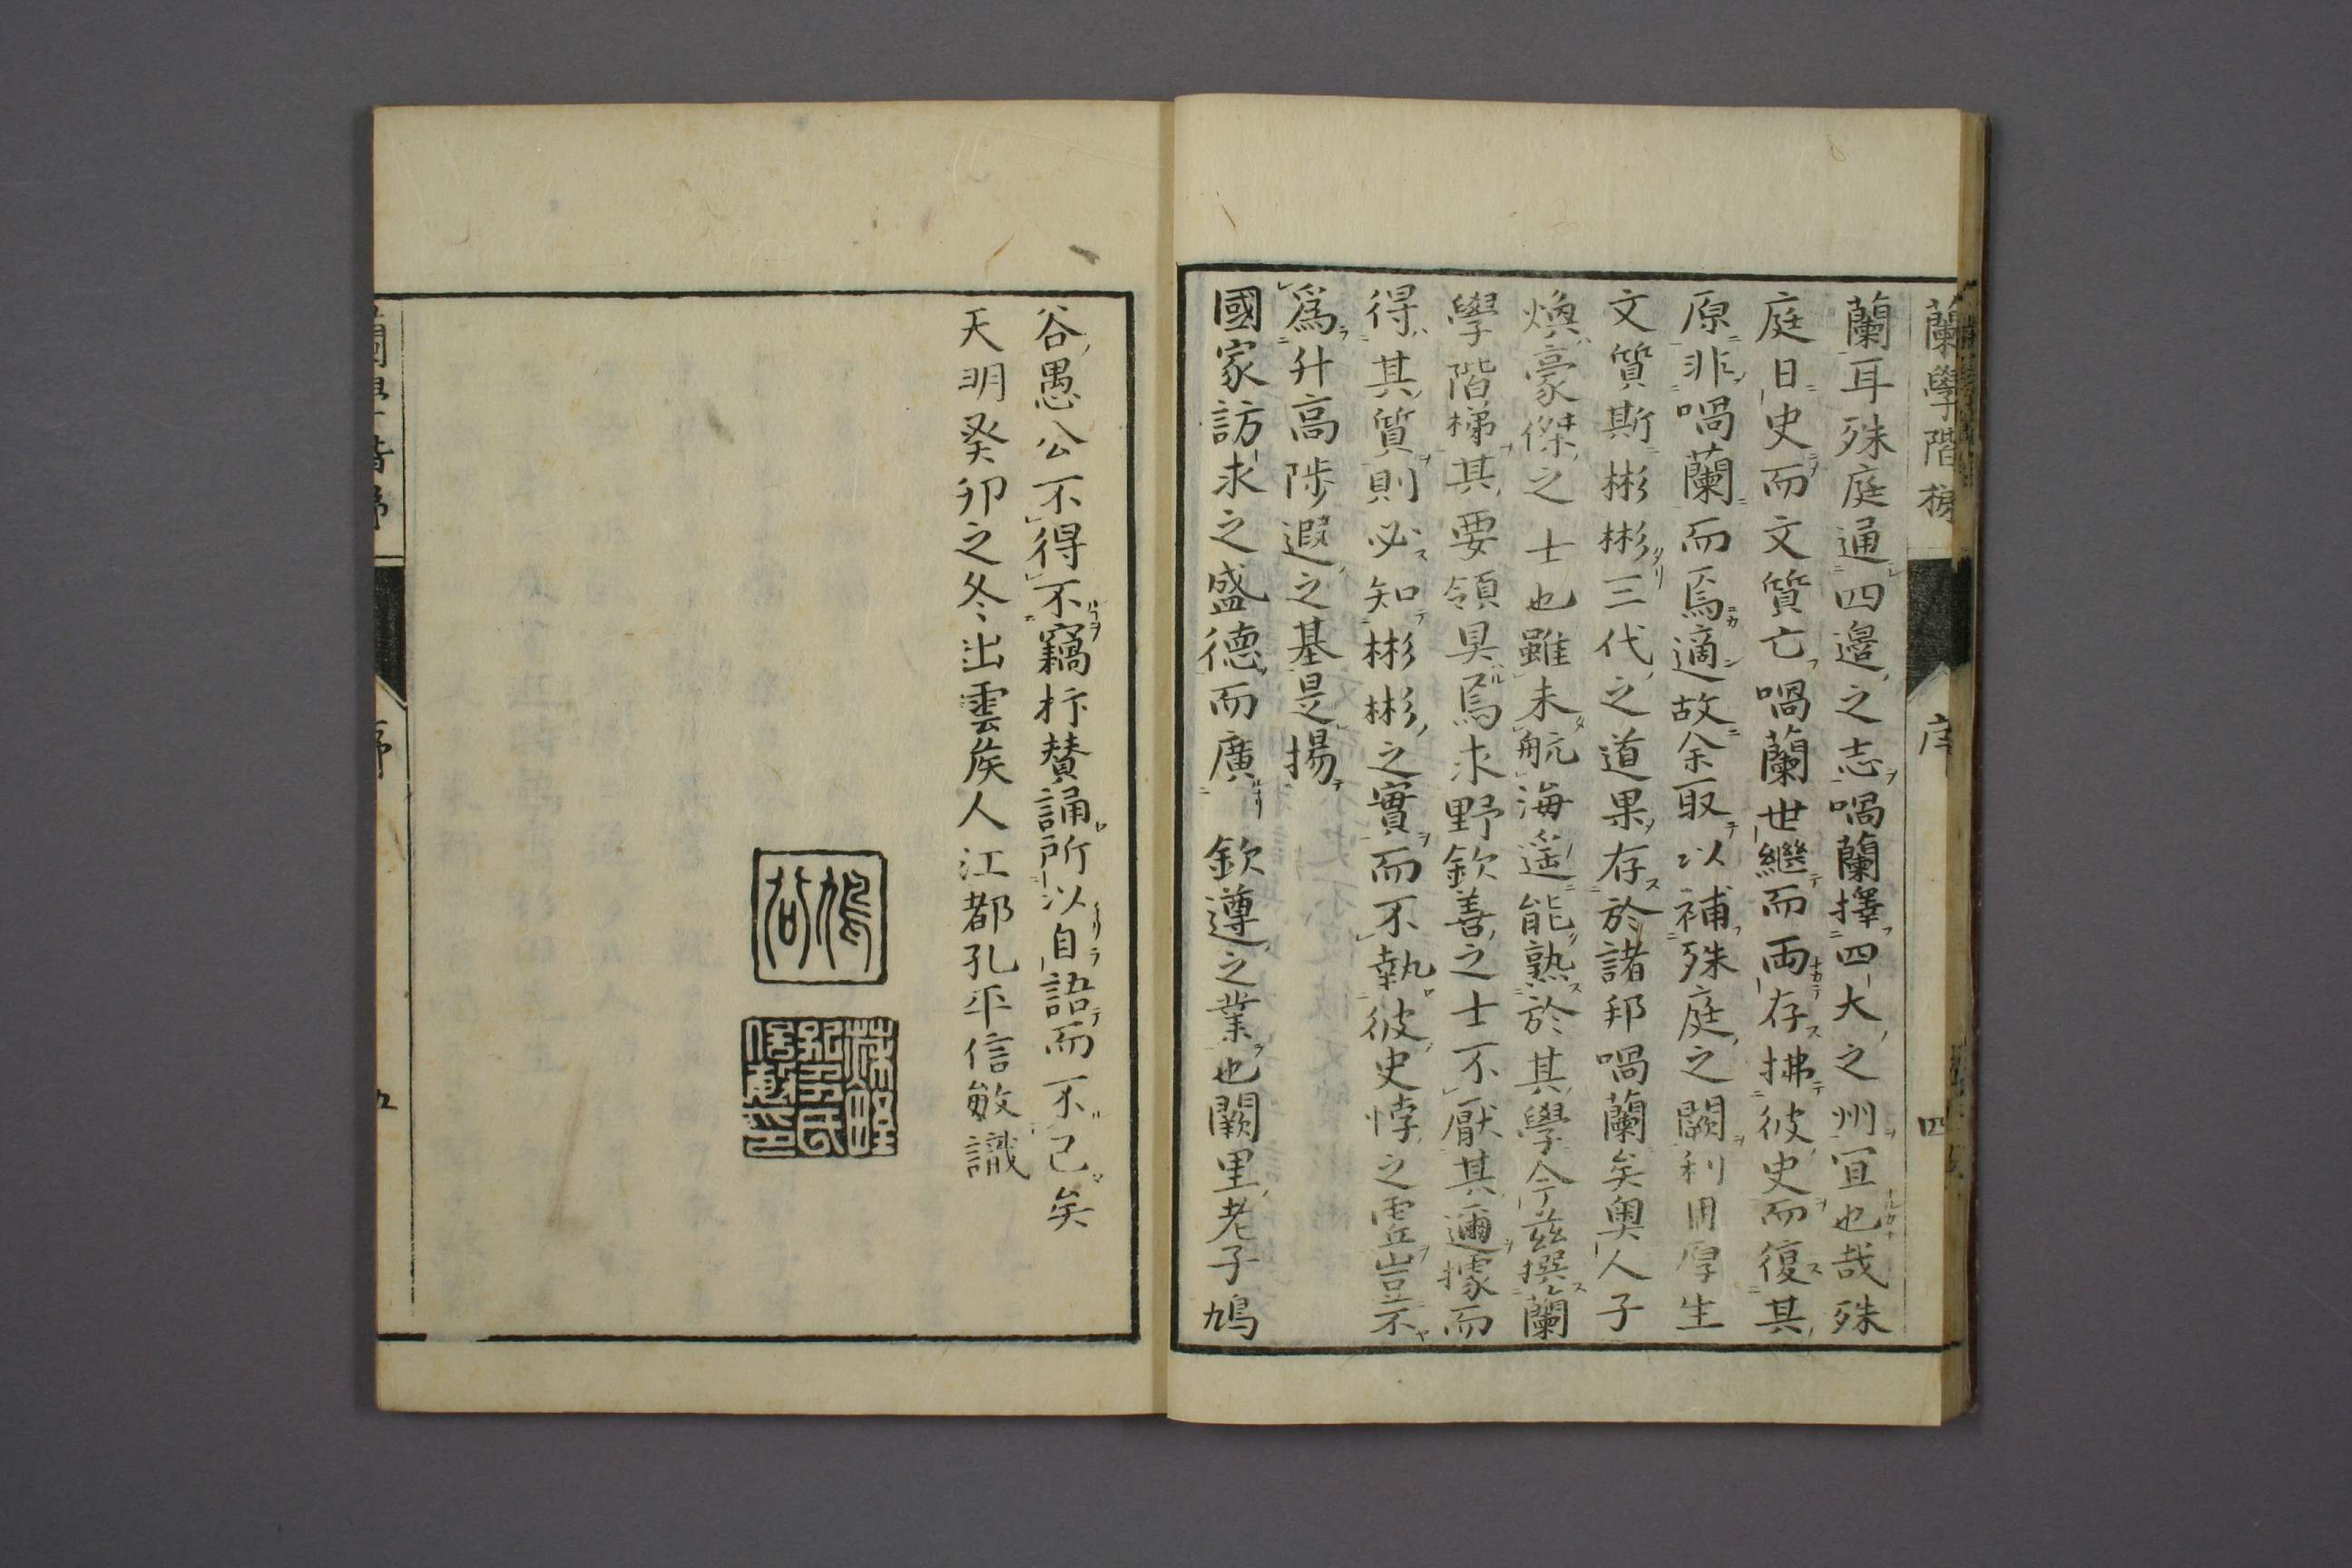 蘭學階梯
序
四
蘭耳殊庭通四邉之志喎蘭擇四大之州冝也哉殊
庭日史而文質亡喎蘭世繼而両存拂彼史而復其
原非喎蘭而焉適故余取以補殊庭之闕利用厚生
文質斯彬彬三代之道果存於諸邦喎蘭矣奥人子
煥豪傑之士也雖未航海遥能熟於其學今茲撰蘭
學階梯其要領具焉求野欽善之士不厭其邇據而
得其質則必知彬彬之實而不執彼史悖之虚豈不
爲升高陟遐之基是揚
國家訪求之盛德而廣欽遵之業也闕里老子鳩
谷愚公不得不竊抃賛誦所以自語而不已矣
天明癸卯之冬出雲矦人江都孔平信敏識
鳩谷
蘭學階梯
序
五